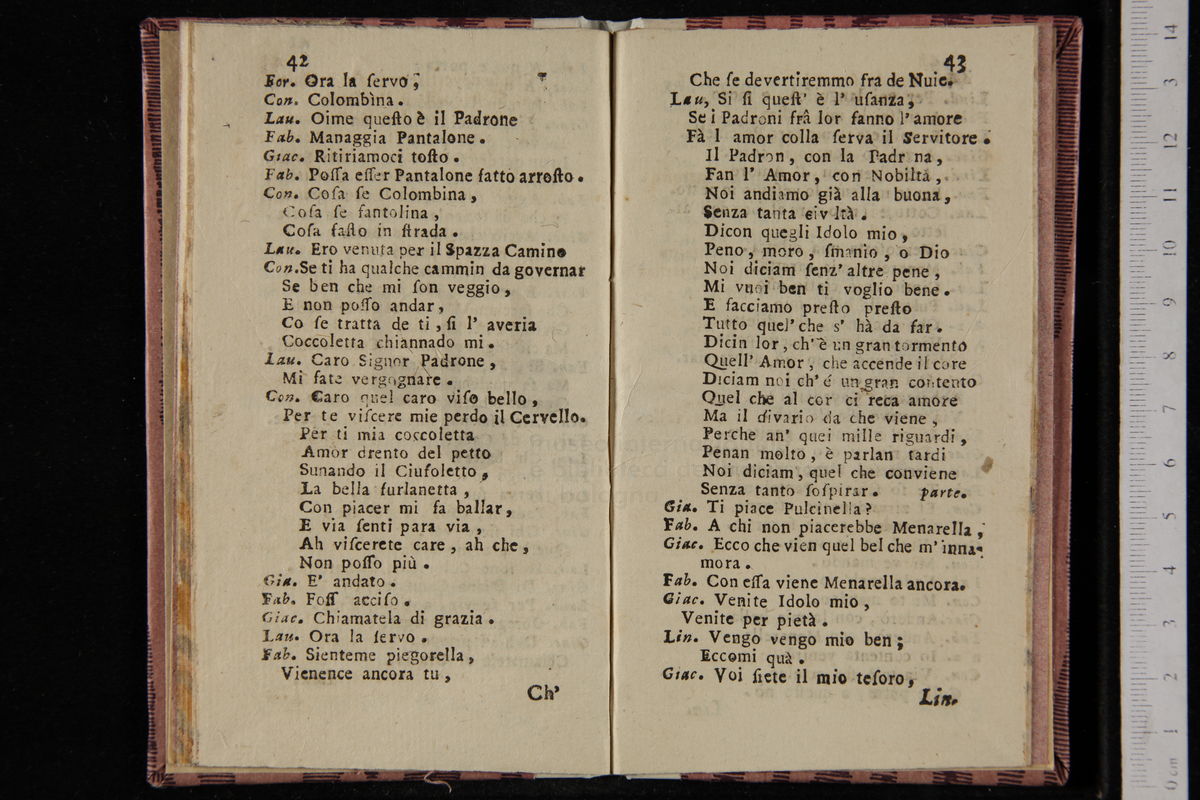 42
For. Ora la ſervo;
Con. Colombina.
Lau. Oime queſto è il Padrone
Fab. Managgia Pantalone.
Giac. Ritiriamoci toſto.
Fab. Poſſa eſſer Pantalone fatto arroſto.
Con. Coſa ſe Colombina,
Coſa ſe fantolina,
Coſa faſto in ſtrada.
Lau. Ero venuta per il Spazza Camino
Con. Se ti ha qualche cammin da governar
Se ben che mi ſon veggio,
E non poſſo andar,
Co ſe tratta de ti, ſi l' averia
Coccoletta chiannado mi.
Lau. Caro Signor Padrone,
Mi fate vergognare.
Con. Caro quel caro viſo bello,
Per te viſcere mie perdo il Cervello.
Per ti mia coccoletta
Amor drento del petto
Sunando il Ciufoletto,
La bella furlanetta,
Con piacer mi fa ballar,
E via ſenti para via,
Ah viſcerete care, ah che,
Non poſſo più.
Gia. E' andato.
Fab. Foſſ acciſo.
Giac. Chiamatela di grazia.
Lau. Ora la ſervo.
Fab. Sienteme piegorella,
Vienence ancora tu,
Ch'
43
Che ſe devertiremmo fra de Nuie.
Lau, Si ſi queſt' è l' uſanza,
Se i Padroni frâ lor fanno l' amore
Fà l amor colla ſerva il Servitore.
Il Padron, con la Padr na,
Fan l' Amor, con Nobiltà,
Noi andiamo già alla buona,
Senza tanta civ ltà.
Dicon quegli Idolo mio,
Peno, moro, ſmanio, o Dio
Noi diciam ſenz' altre pene,
Mi vuoi ben ti voglio bene.
E facciamo preſto preſto
Tutto quel' che s' hà da far.
Dicin lor, ch' è un gran tormento
Quell' Amor, che accende il core
Diciam noi ch' é un gran contento
Quel che al cor ci reca amore
Ma il divario da che viene,
Perche an' quei mille riguardi,
Penan molto, è parlan tardi
Noi diciam, quel che conviene
Senza tanto ſoſpirar. parte.
Gia. Ti piace Pulcinella?
Fab. A chi non piacerebbe Menarella,
Giac. Ecco che vien quel bel che m' inna-
mora.
Fab. Con eſſa viene Menarella ancora.
Giac. Venite Idolo mio,
Venite per pietà.
Lin. Vengo vengo mio ben;
Eccomi quà.
Giac. Voi ſiete il mio teſoro,
Lin.